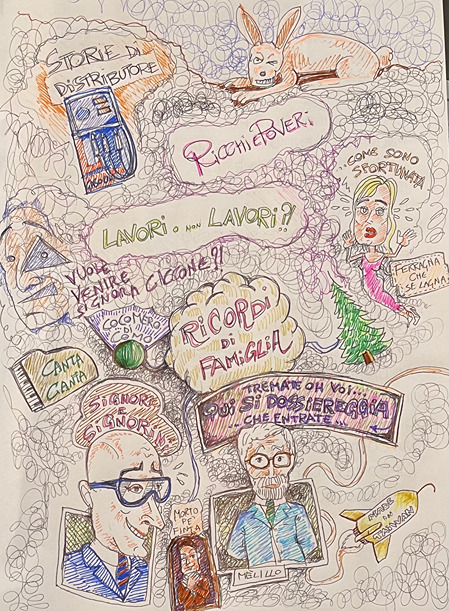 STORIE DI
DISTRIBUTORE
RICCHIePOVERi
...COME SONO
SFORTUNATA
LAVORi o NON LAVORI?!
VUOLE
VENIRE
SIGNORA CICCONE?!
FERRAGNA
CHE
SE LAGNA
COCOMERO
RICORDI
DI
FAMIGLIA
CANTA
CANTA
SIGNORI
E
SIGNORINI
TREMATE OH VOI...
QUI SI DOSSIEREGGIA
...CHE ENTRATE...
MORTO
PE
FINTA
MELILLO